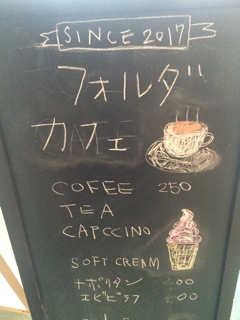 SINCE 2017
フォルダ
カフェ
COFEE 250
TEA
CAPCCINO
SOFT CREAM
ナポリタン
エビピラフ